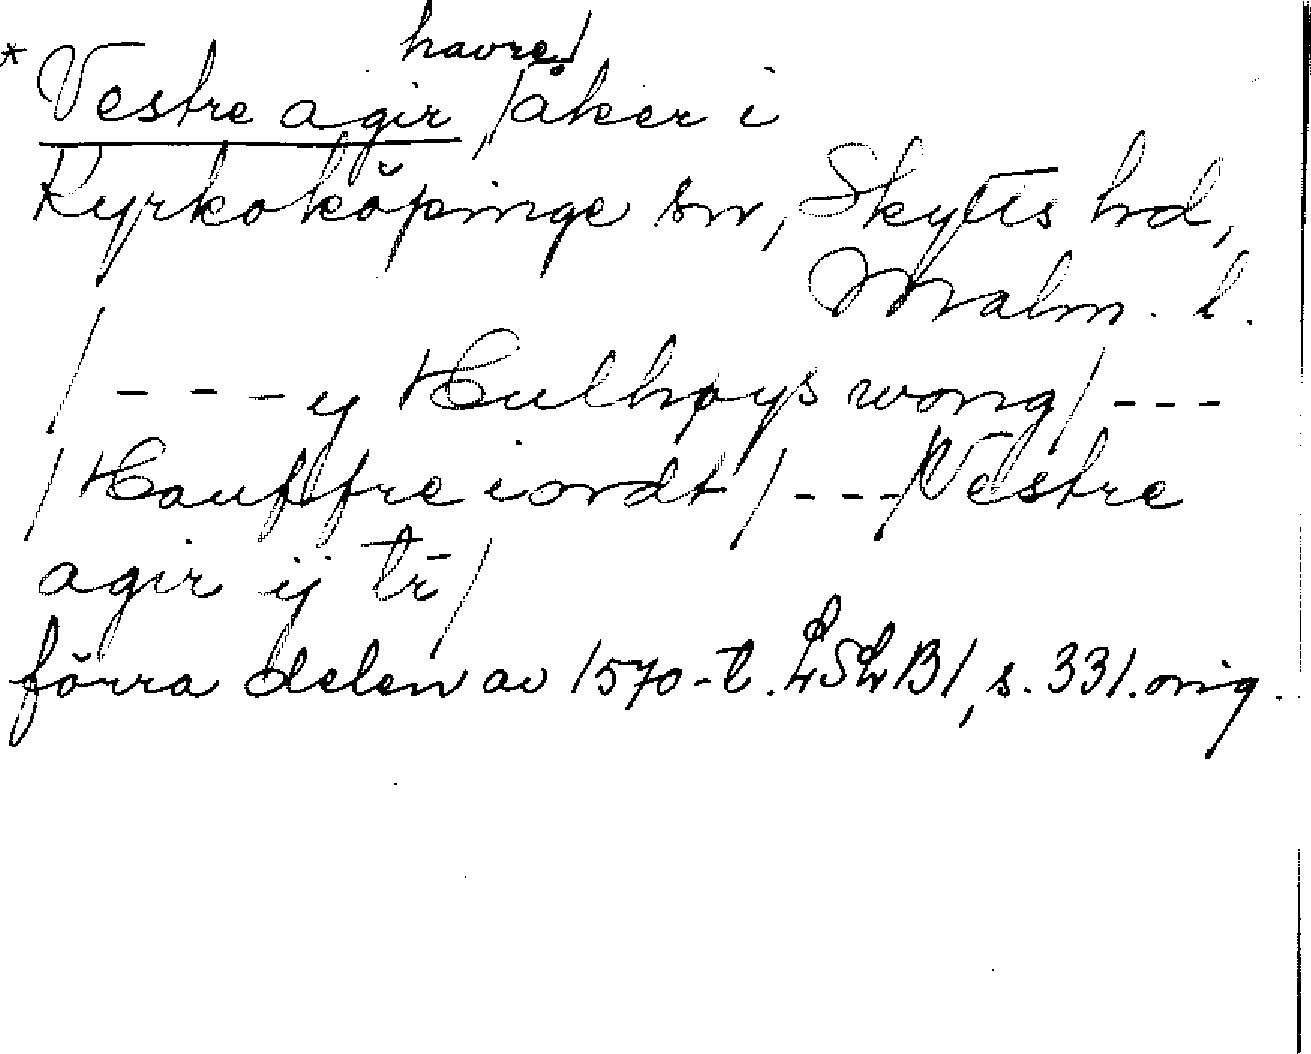 havre/
* Vestre agir /åker i
Kyrkoköpinge sn, Skytts hd,
Malm. l.
/ - - - y Hulhøys wong/ - - -
/Hauffre iordt/ - - -/Vestre
agir ij tr̄/
förra delen av 1570-t. LSLB1, s. 331. orig.